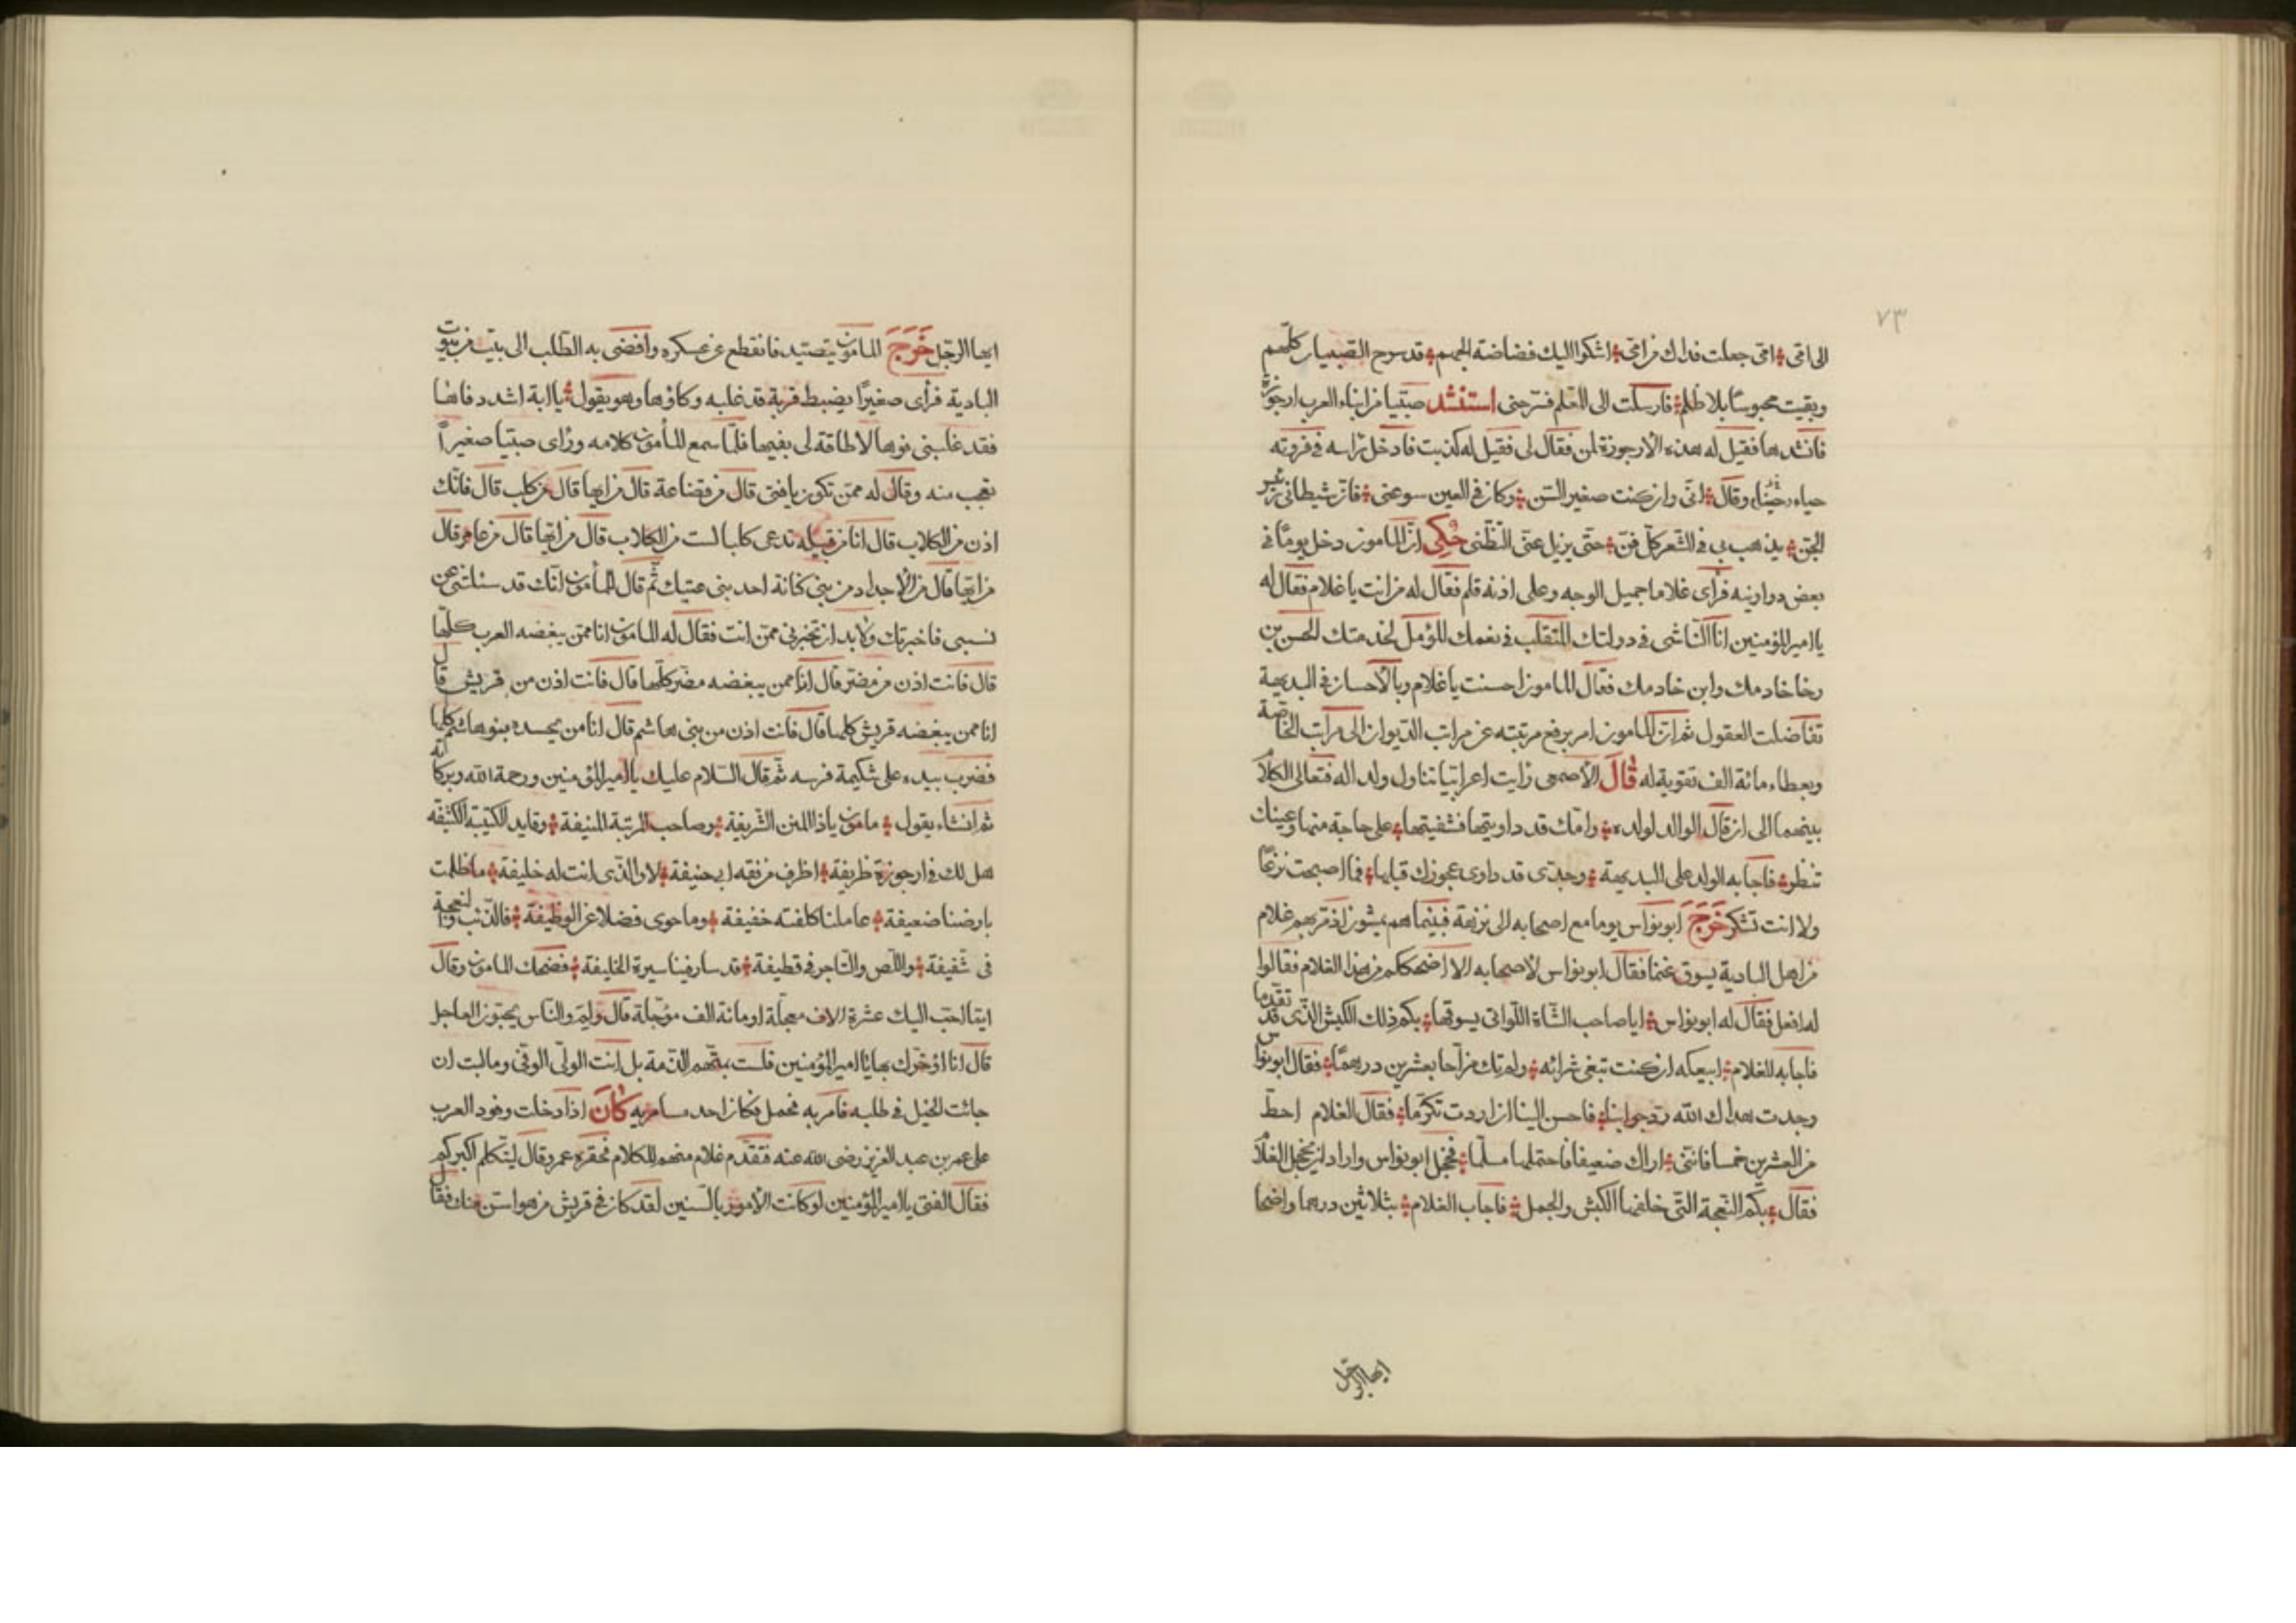 ٧٣
الى امّى ؛ امّى جعلت فداك من امّى ؛ اشكوا اليك فضاضة الجهم ؛ قد سرح الصبيان كلّهم
وبقيت محبوسًا بلا ظلم ؛ فارسلت الى المعلم فسرّحنى استنشد صبّيا من ابناء العرب ارجوزة
فانشدها فقيل له هذه الارجوزة لمن فقال لى فقيل له كذبت فادخل راسه فى فروته
حياء وقال ؛ انّى وان كنت صغير السّن ؛ وكان فى العين سو عنى ؛ فانّ شيطانى
الجن ؛ يذهب بى فى الشّعر كلّ فنّ ؛ حتّى يزيل عنّى التظّنى حُكِى انّ المامون دخل يومًا فى
بعض دواوينه فرأى غلاما جميل الوجه وعلى اذنه قلم فقال له من انت يا غلام فقال له
يا امير المؤمنين انا النّاشى فى دولتك المتقلب فى نعمك المؤمل لخدمتك الحسن بن
رخا خادمك وابن خادمك فقال المامون احسنت يا غلام وبالأحسان فى البديهة
تفاضلت العقول ثم انّ المامون امر برفع مرتبته عن مراتب الدّيوان الى مراتب الخاصّة
وبعطاء مائة الف تقوية له قَالَ الأصمعى رايت اعرابّيا تناول ولدا له فتعالى الكلام
بينهما الى ان قال الوالد لولده ؛ وامّك قد داويتها فشفيتها ؛ على حاجة منها وعينك
تنظر ؛ فاجابه الولد على البديهة ؛ وجدّتى قد داوى عجوزك قبلها ؛ فما اصبحت
ولا انت تشكر خَرَجَ ابو نواس يوما مع اصحابه الى نزهة فبينما هم يمشون اذ مرّ بهم غلام
من اهل البادية يسوق غنما فقال ابو نواس لأصحابه الا اضحككم من هذا الغلام فقالوا
له افعل فقال له ابو نواس ؛ ايا صاحب الشّاة اللّواتى يسوقها ؛ بكم ذلك الكبش الّذى قد تقدّما
فاجابه الغلام ؛ ابيعكه ان كنت تبغى شرائه ؛ ولم تك مزّاحا بعشرين درهمًا ؛ فقال ابو نواس
وجدت هداك الله ردّ جوابنا ؛ فاحسن الينا ان اردت تكرّما ؛ فقال الغلام احطّ
من العشرين خمسا فانّنى ؛ اراك ضعيفا فاحتملها مسلّما ؛ فخجل ابو نواس واراد ان يخجل الغلام
فقال ؛ بكم النّعجة الّتى خلفها الكبش والجمل ؛ فاجاب الغلام ؛ بثلاثين درهما واضحا
ايها الرجل
ايها الرجل خَرَجَ المامون يتصيّد فانقطع عن عسكره وافضى به الطّلب الى بيت من بيوت
البادية فرأى صغيرًا يضبط قربة قد غلبه وكاؤها وهو يقول ؛ يا ابة اشدد فاها
فقد غلبنى فوها لا طاقة لى بفيها فلمّا سمع المأمون كلامه ورأى صبّيا صغيراً
تعجب منه وقال له ممّن تكون يا فتى قال من قضاعة قال من ايها قال من كلب قال فانّك
اذن من الكلاب قال انا من قبيلة تدعى كلبا لست من الكلاب قال من ايّها قال من عامر قال
من ايّها قال من الأجداد من بنى كنانة احد بنى عتيك ثم قال للمأمون انّك قد سئلتنى عن
نسبى فاخبرتك ولا بد ان تخبرنى ممّن انت فقال له المامون انا ممّن يبغضه العرب كلّها
قال فانت اذن من مضر قال انا ممن يبغضه مضر كلّها قال فانت اذن من قريش قال
انا ممن يبغضه قريش كلها قال فانت اذن من بنى هاشم قال انا من يحسده بنو هاشم كلها
فضرب بيده على شكيمة فرسه ثم قال السّلام عليك يا امير المؤمنين ورحمة الله وبركاته
ثم انشاء يقول ؛ مامون ياذا المنن الشّريفة ؛ وصاحب المرتبة المنيفة ؛ وقايد الكتيبة الكثيفة
هل لك فى ارجوزة ظريفة ؛ اظرف من فقه ابى حنيفة ؛ لا والّذى انت له خليفة ؛ ما ظلمت
بارضنا ضعيفة ؛ عاملنا كلفته خفيفة ؛ وما حوى فضلا عن الوظيفة ؛ فالذّئب والنعجة
فى سقيفة ؛ واللّص والتّاجر فى قطيفة ؛ قد سار فينا سيرة الخليفة ؛ فضحك المامون وقال
ايّما احبّ اليك عشرة الاف معجلّة او مائة الف مؤجّلة قال ولم والنّاس يحبّون العاجل
قال انا اؤخّرك بها يا امير المؤمنين فلست بمتّهم الذّمة بل انت الولّى الوفّى وما لبث ان
جائت الخيل فى طلبه فامر به فحمل فكان احد مسامريه كَانَ اذا دخلت وفود العرب
على عمر بن عبد العزيز رضى الله عنه فتقدّم غلام منهم للكلام فحقره عمر وقال ليتكلم اكبركم
فقال الفتى يا امير المؤمنين لو كانت الأمور بالسّنين لقد كان فى قريش من هو اسنّ منك فقال